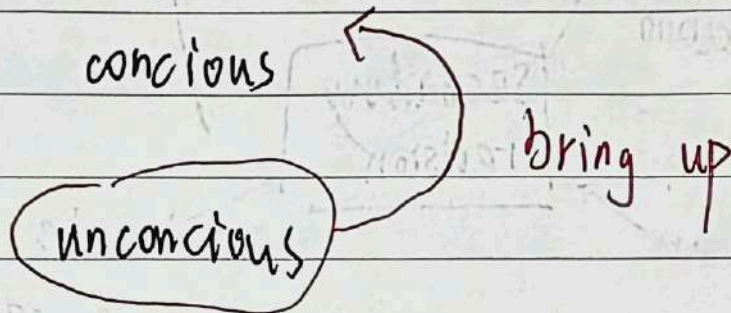 concious
bring up
unconcious